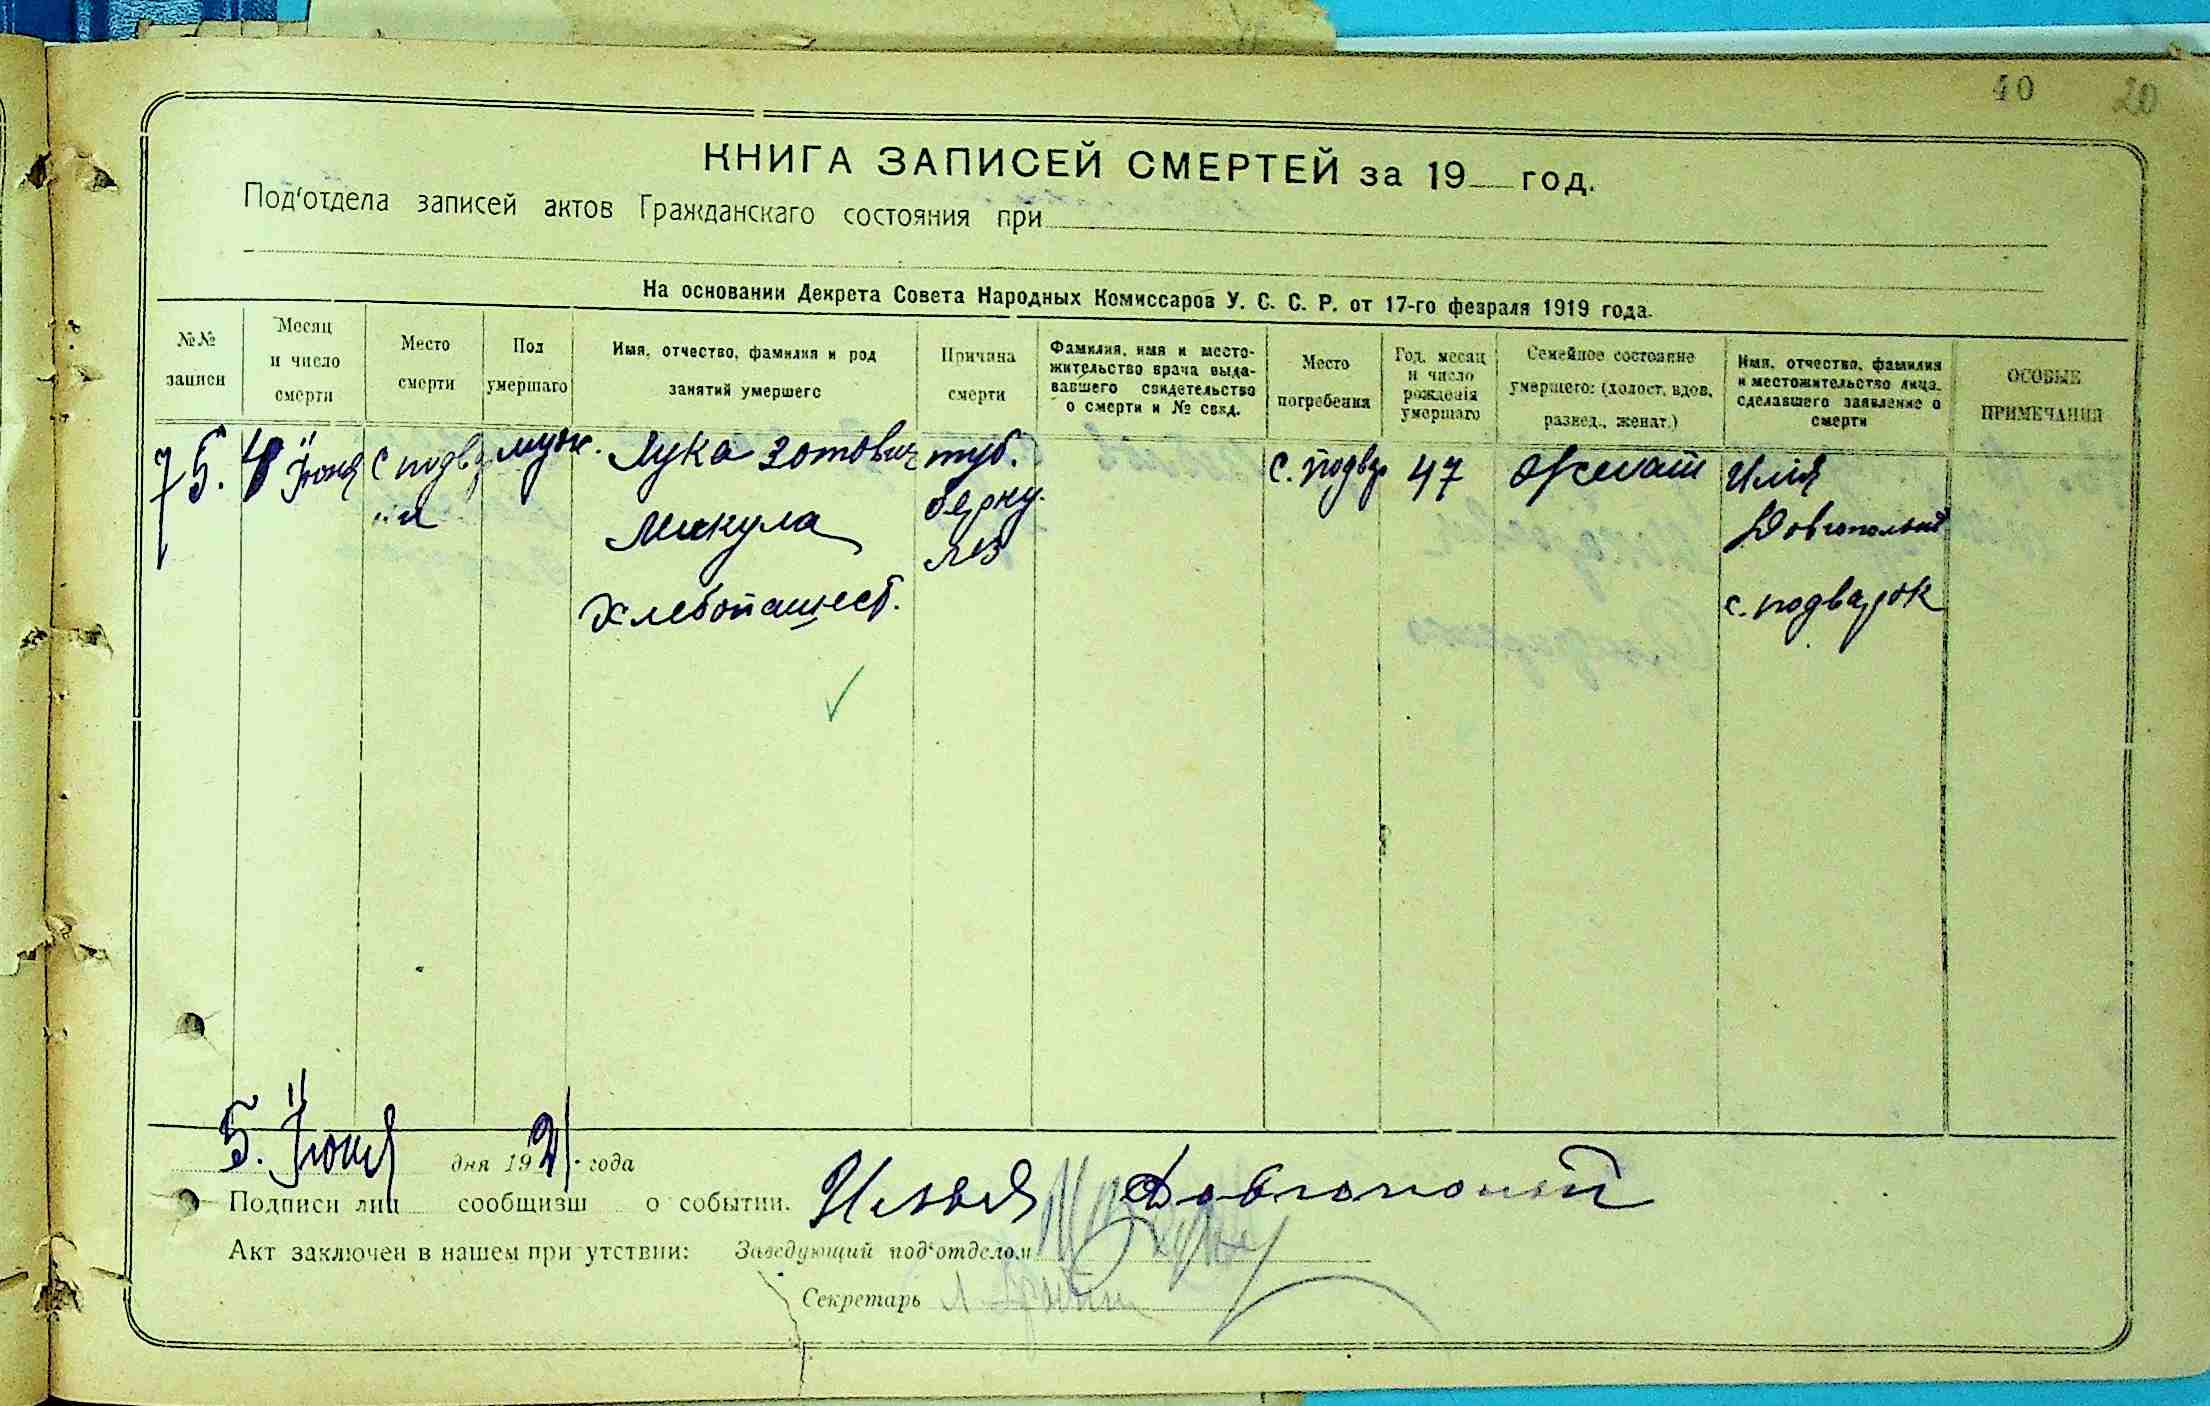 40 20
КНИГА ЗАПИСЕЙ СМЕРТЕЙ за 19 год.
Под'отдела записей актов Гражданскаго состояния при
На основании Декрета Совета Народных Комиссаров У. С. С. Р. от 17-го февраля 1919 года.
№№ записи
Месяц и число смерти
Место смерти
Пол умершаго
Имя, отчество, фамилия и род занятий умершего
Причина смерти
Фамилия, имя и место-
жительство врача выда-
вавшего свидетельство
о смерти и № свид.
Место погребения
Год, месяц
и число
рождения
умершаго
Семейное состояние
умершего: (холост, вдов,
развед., женат.)
Имя, отчество, фамилия
и местожительство лица,
сделавшего заявление о
смерти
ОСОБЫЕ
ПРИМЕЧАНИЯ
75. Июня с подвар муж. Лука Зотович туб. с. подвар 47 Женат Илия
Микула Довгополый
Хлебопашест. с. подварок
5. Июня дня 1921. года
Подписи лиц сообщивш о событии. Илья Довгополый
Акт заключен в нашем при утствии: Заведующий под'отделом
Секретарь